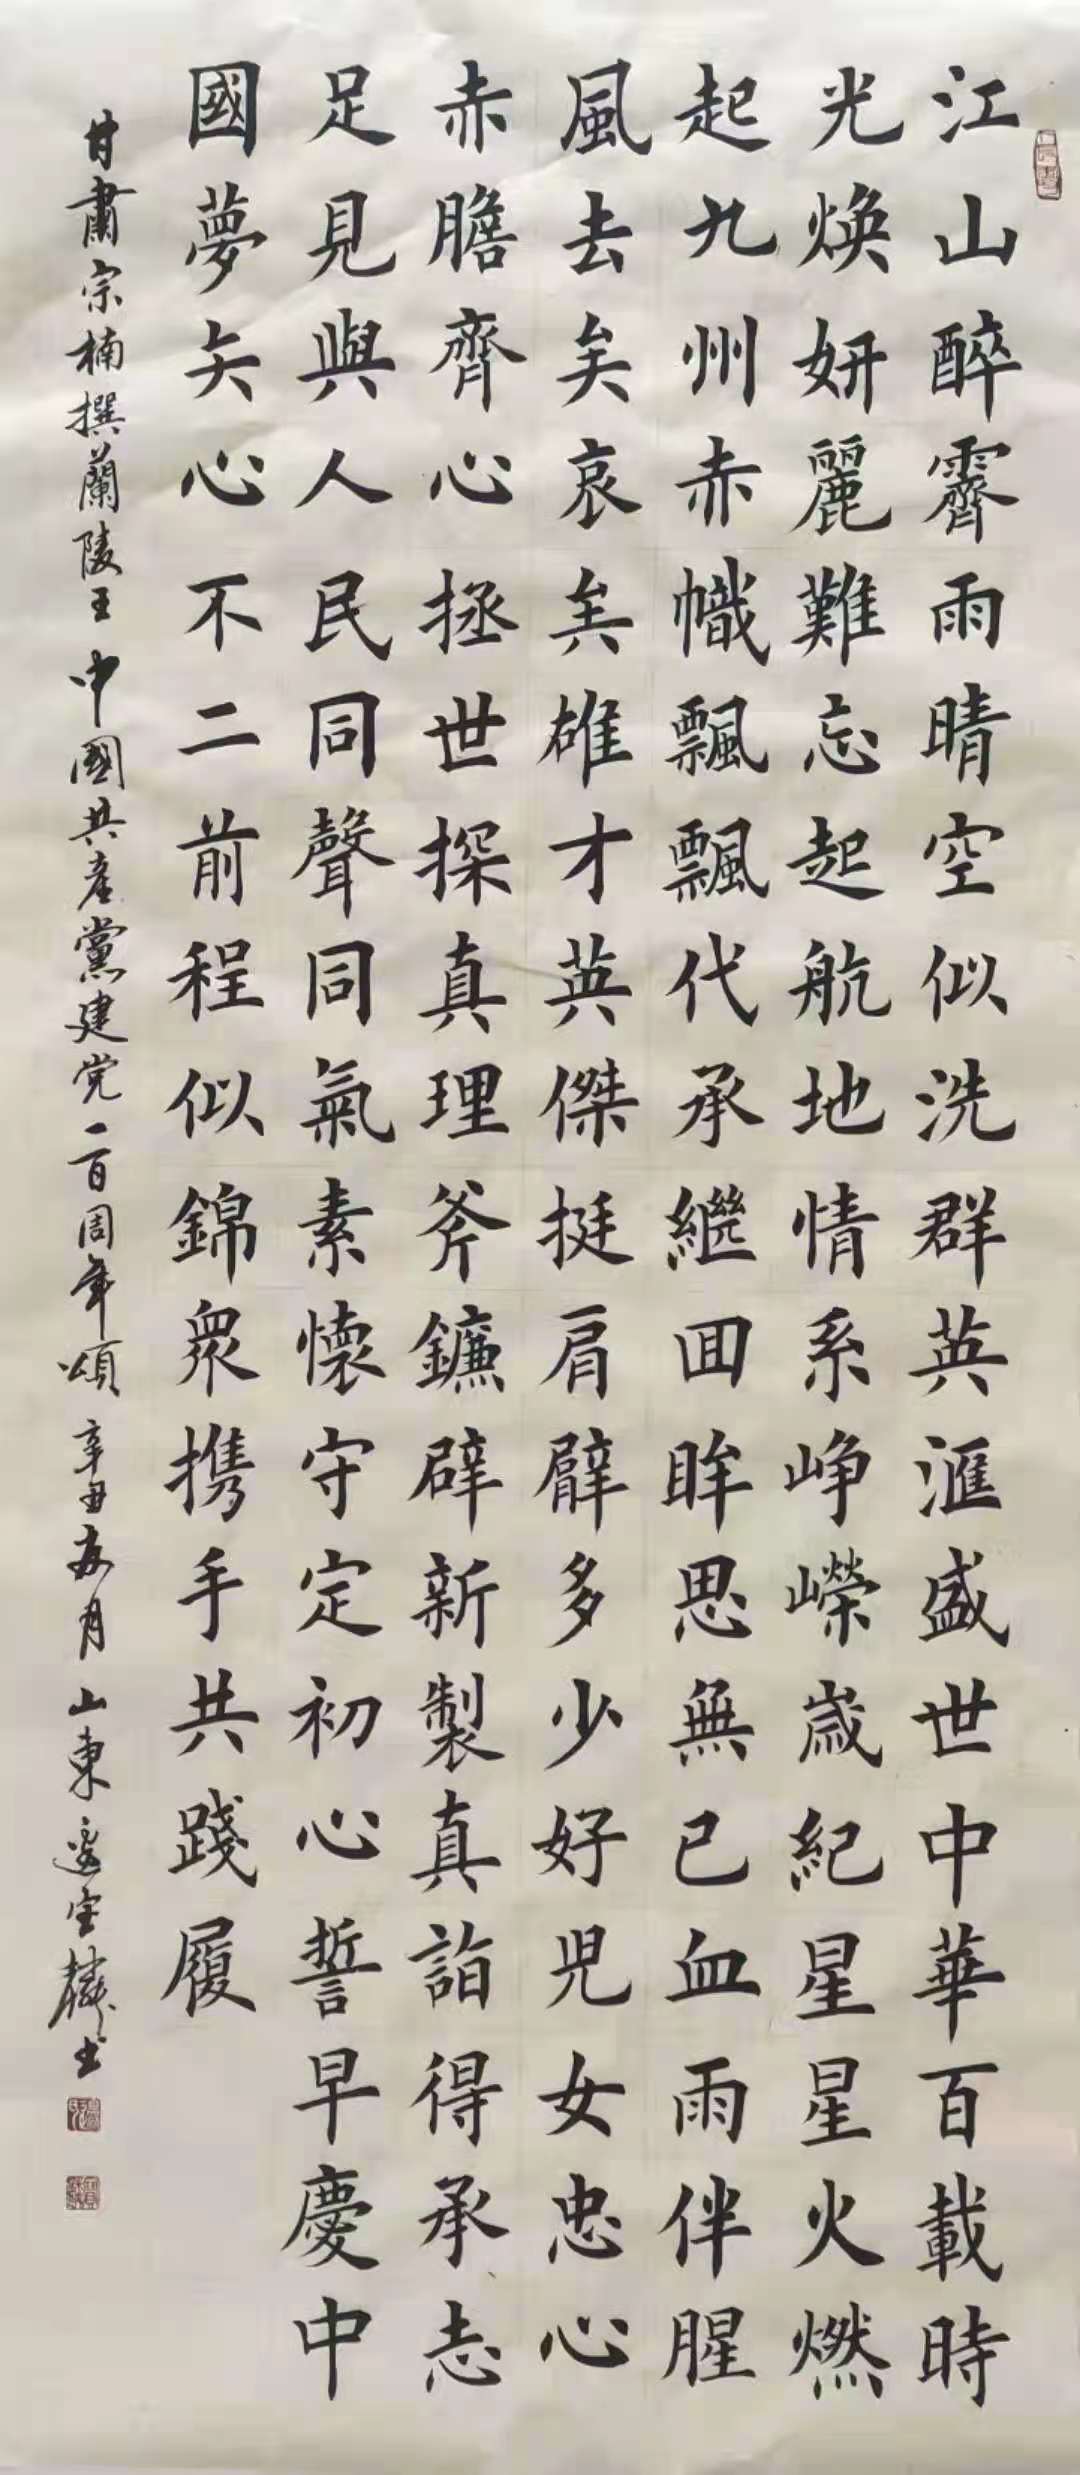 江山醉霽雨晴空似洗群英滙盛世中華百載時
光焕妍麗難忘起航地情系峥嶸歲紀星星火燃
起九州赤幟飄飄代承繼回眸思無已血雨伴腥
風去矣哀矣雄才英傑挺肩臂多少好兒女忠心
赤膽齊心拯世探真理斧鐮辟新製真詣得承志
足見與人民同聲同氣素懷守定初心誓早慶中
國夢矢心不二前程似錦衆携手共踐履
甘肅宗楠撰蘭陵王中國共產黨建党一百周年頌辛丑夏月山東邊宝麟书